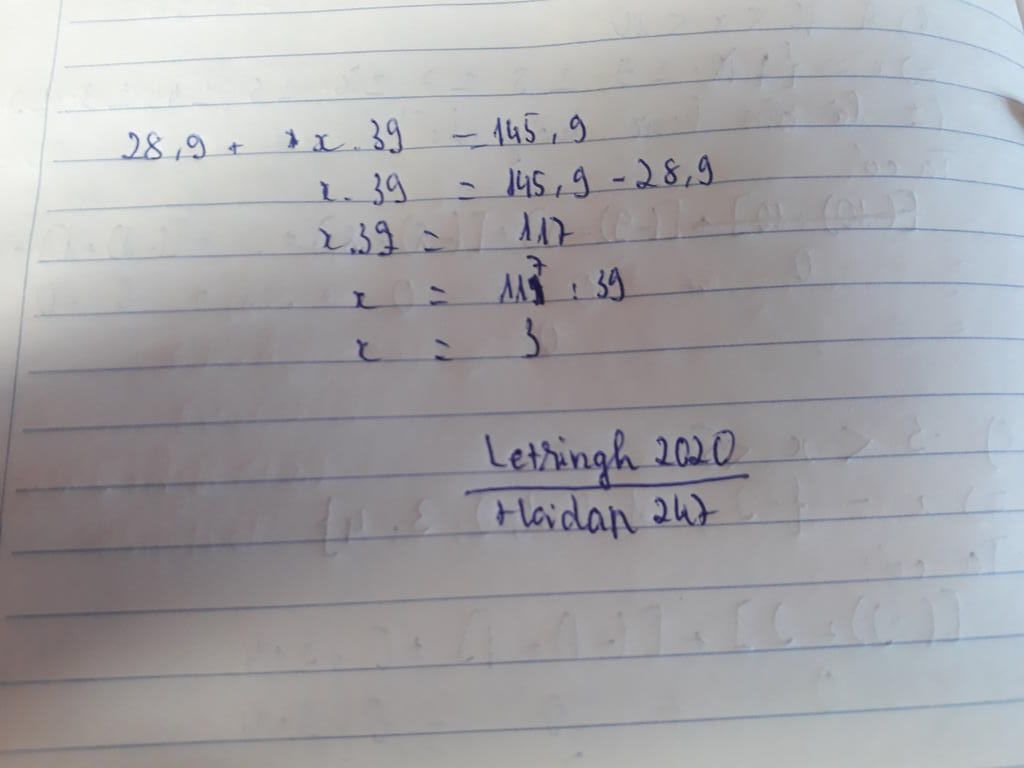 28,9 + x . 39 = 145,9
x . 39 = 145,9 - 28,9
x . 39 = 117
x = 117 : 39
x = 3
Letringh 2020
Hoidap 247